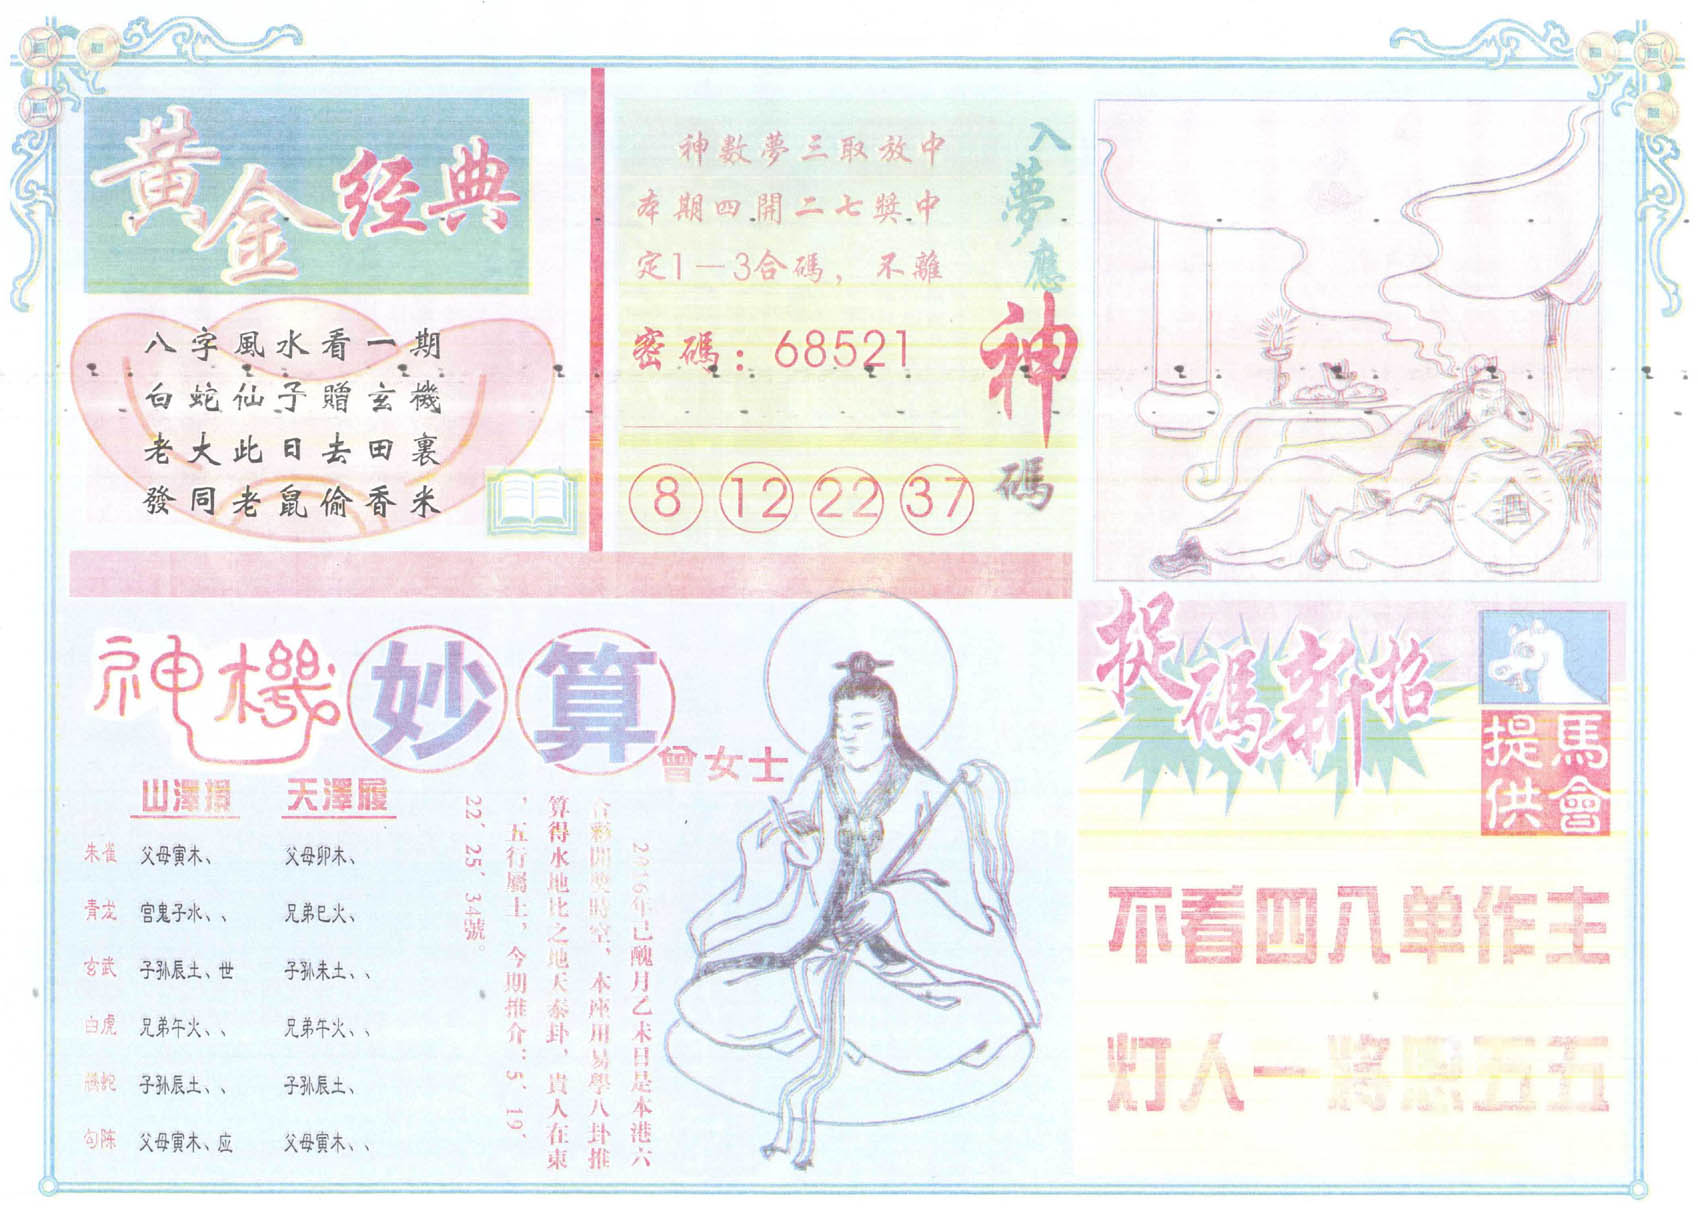 黃金经典
八字風水看一期
白蛇仙子贈玄機
老大此日去田裏
發同老鼠偷香米
入夢應神碼
神數夢三取放中
本期四開二七獎中
定1—3合碼，不離
密碼：68521
8 12 22 37
神機妙算
曾女士
山澤損 天澤履
朱雀 父母寅木、 父母卯木、
青龙 宫鬼子水、、 兄弟巳火、
玄武 子孙辰土、世 子孙未土、、
白虎 兄弟午火、、 兄弟午火、、
螣蛇 子孙辰土、、 子孙辰土、
勾陈 父母寅木、应 父母寅木、、
2016年己醜月乙未日是本港六
合彩開獎時空，本座用易學八卦推
算得水地比之地天泰卦，貴人在東
，五行屬土，今期推介：5、19、
22、25、34號。
捉碼新招
馬會
提供
不看四八单作主
灯人一將恩五五